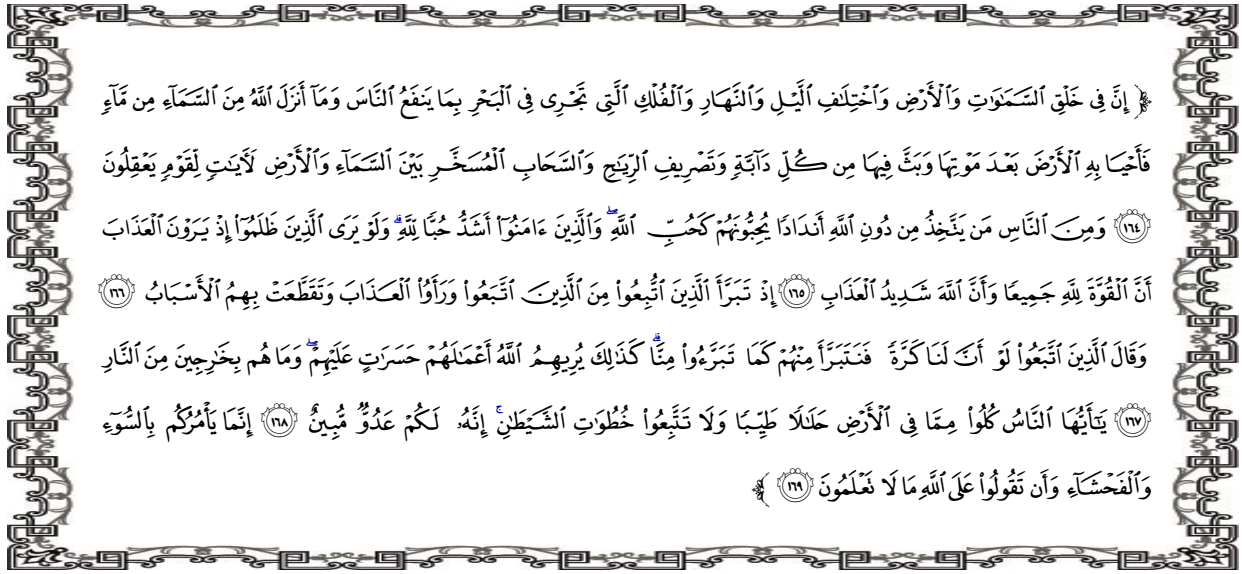 ﴿ إِنَّ فِى خَلْقِ ٱلسَّمَـٰوَٰتِ وَٱلْأَرْضِ وَٱخْتِلَـٰفِ ٱلَّيْلِ وَٱلنَّهَارِ وَٱلْفُلْكِ ٱلَّتِى تَجْرِى فِى ٱلْبَحْرِ بِمَا يَنفَعُ ٱلنَّاسَ وَمَآ أَنزَلَ ٱللَّهُ مِنَ ٱلسَّمَآءِ مِن مَّآءٍ
فَأَحْيَا بِهِ ٱلْأَرْضَ بَعْدَ مَوْتِهَا وَبَثَّ فِيهَا مِن كُلِّ دَآبَّةٍ وَتَصْرِيفِ ٱلرِّيَـٰحِ وَٱلسَّحَابِ ٱلْمُسَخَّرِ بَيْنَ ٱلسَّمَآءِ وَٱلْأَرْضِ لَـَٔايَـٰتٍ لِّقَوْمٍ يَعْقِلُونَ
﴿١٦٤﴾ وَمِنَ ٱلنَّاسِ مَن يَتَّخِذُ مِن دُونِ ٱللَّهِ أَندَادًا يُحِبُّونَهُمْ كَحُبِّ ٱللَّهِ ۖ وَٱلَّذِينَ ءَامَنُوٓا۟ أَشَدُّ حُبًّا لِّلَّهِ ۗ وَلَوْ يَرَى ٱلَّذِينَ ظَلَمُوٓا۟ إِذْ يَرَوْنَ ٱلْعَذَابَ
أَنَّ ٱلْقُوَّةَ لِلَّهِ جَمِيعًا وَأَنَّ ٱللَّهَ شَدِيدُ ٱلْعَذَابِ ﴿١٦٥﴾ إِذْ تَبَرَّأَ ٱلَّذِينَ ٱتُّبِعُوا۟ مِنَ ٱلَّذِينَ ٱتَّبَعُوا۟ وَرَأَوُا۟ ٱلْعَذَابَ وَتَقَطَّعَتْ بِهِمُ ٱلْأَسْبَابُ ﴿١٦٦﴾
وَقَالَ ٱلَّذِينَ ٱتَّبَعُوا۟ لَوْ أَنَّ لَنَا كَرَّةً فَنَتَبَرَّأَ مِنْهُمْ كَمَا تَبَرَّءُوا۟ مِنَّا ۗ كَذَٰلِكَ يُرِيهِمُ ٱللَّهُ أَعْمَـٰلَهُمْ حَسَرَٰتٍ عَلَيْهِمْ ۖ وَمَا هُم بِخَـٰرِجِينَ مِنَ ٱلنَّارِ
﴿١٦٧﴾ يَـٰٓأَيُّهَا ٱلنَّاسُ كُلُوا۟ مِمَّا فِى ٱلْأَرْضِ حَلَـٰلًا طَيِّبًا وَلَا تَتَّبِعُوا۟ خُطُوَٰتِ ٱلشَّيْطَـٰنِ ۚ إِنَّهُۥ لَكُمْ عَدُوٌّ مُّبِينٌ ﴿١٦٨﴾ إِنَّمَا يَأْمُرُكُم بِٱلسُّوٓءِ
وَٱلْفَحْشَآءِ وَأَن تَقُولُوا۟ عَلَى ٱللَّهِ مَا لَا تَعْلَمُونَ ﴿١٦٩﴾ ﴾